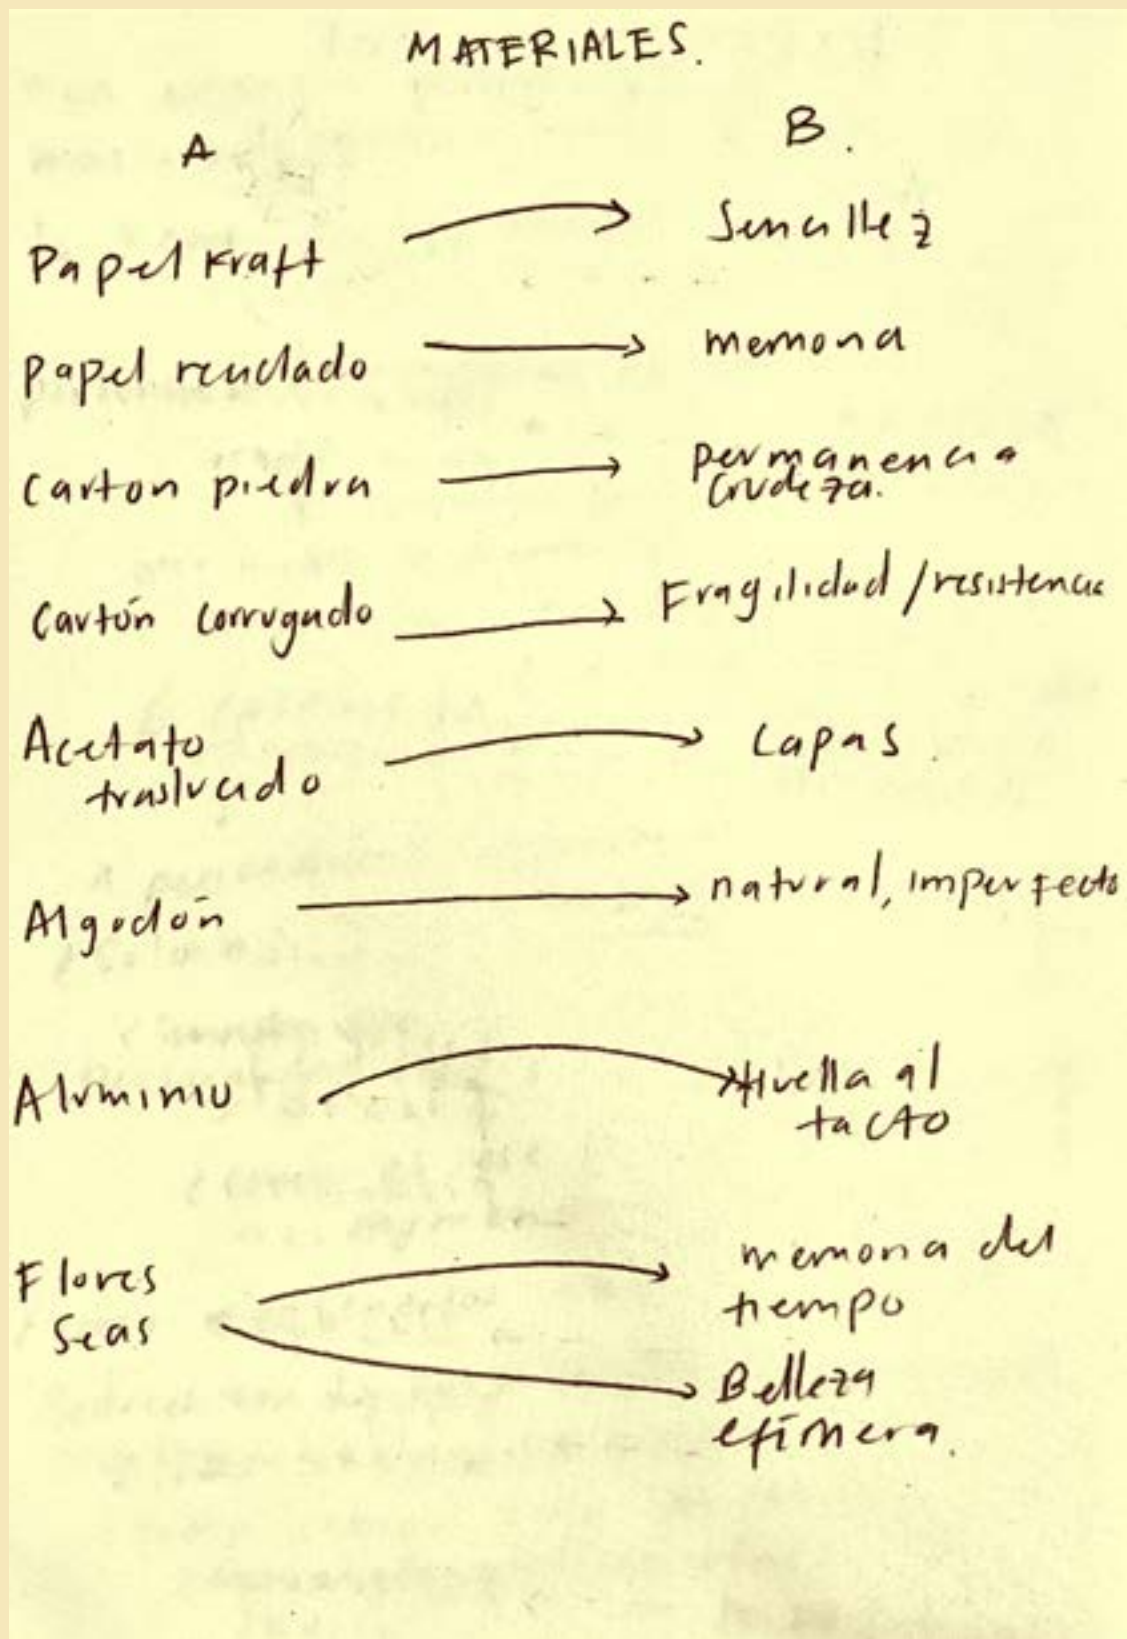 MATERIALES.
A
B.
Papel Kraft
Sencillez
Papel reciclado
memoria
Carton piedra
permanencia
Crudeza.
Cartón corrugado
Fragilidad/resistencia
Acetato
traslucido
Capas
Algodón
natural, imperfecto
Aluminio
Huella al
tacto
Flores
Secas
memoria del
tiempo
Belleza
efímera.